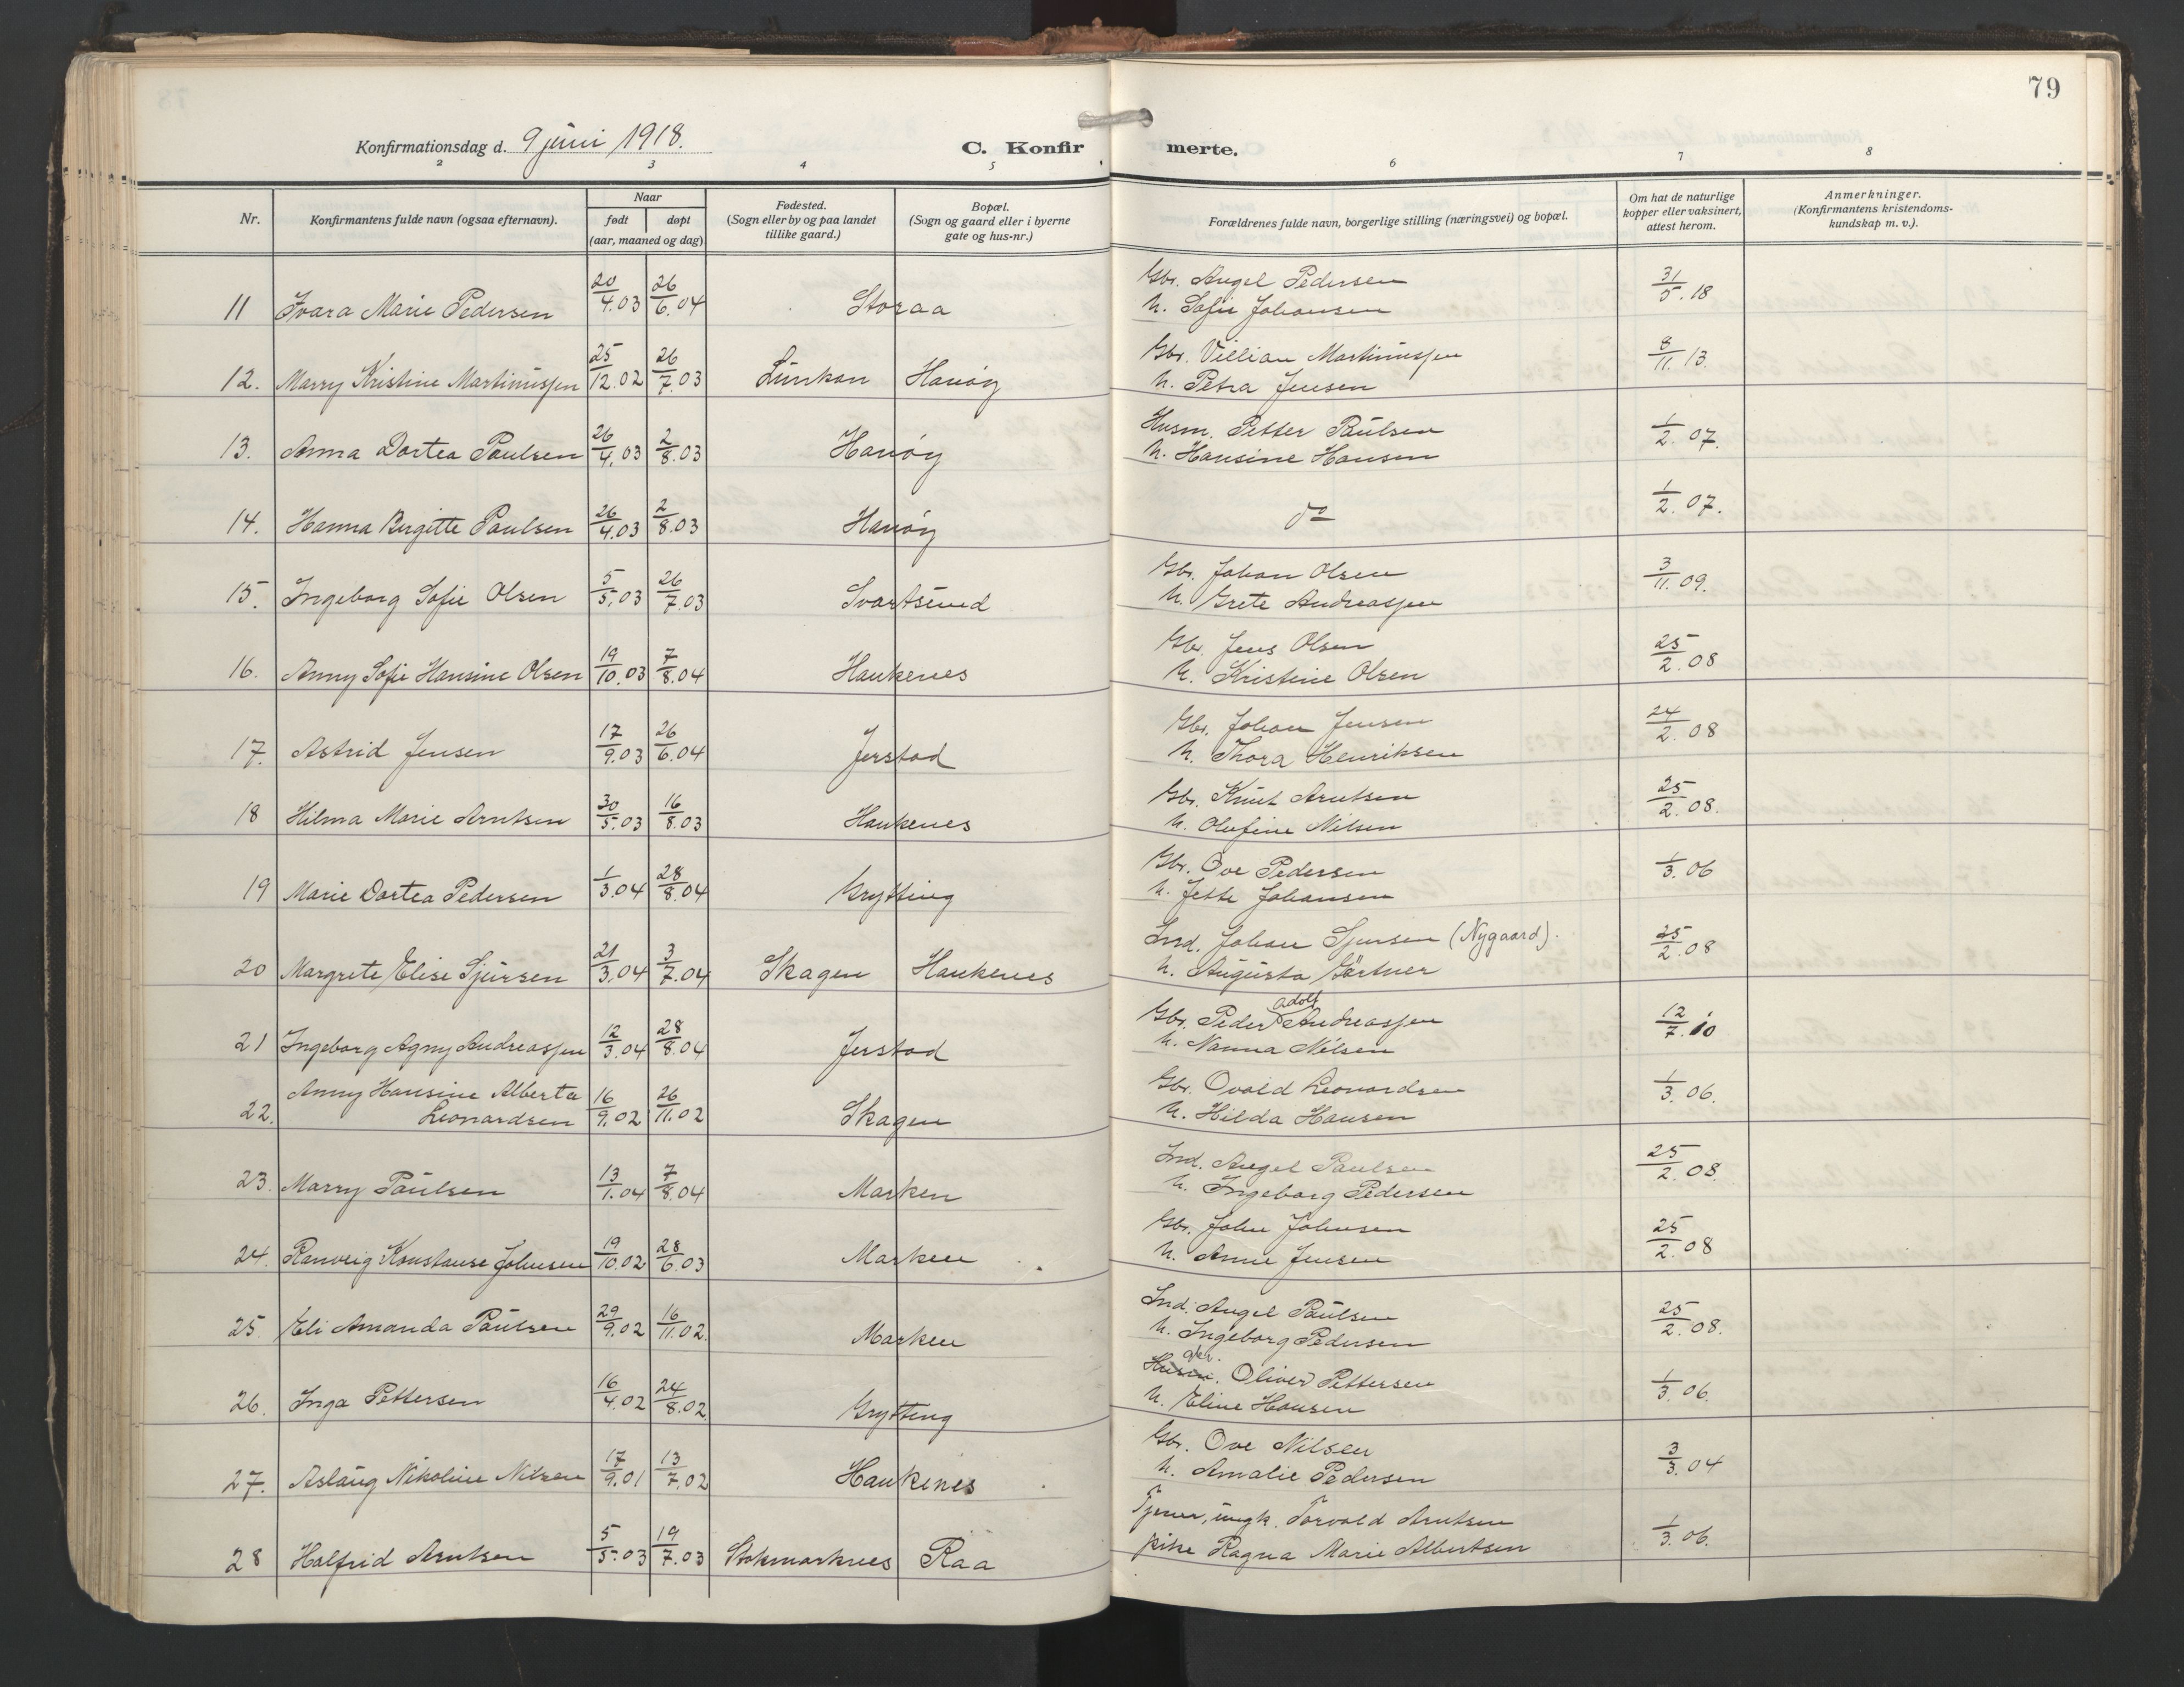 79
Konfirmationsdag d. 9 juni 1918.
C. Konfirmerte.
2 3 4 5 6 7 8
Nr. Konfirmantens fulde navn (ogsaa efternavn). Naar født døpt (aar, maaned og dag) Fødested. (Sogn eller by og paa landet tillike gaard.) Bopæl. (Sogn og gaard eller i byerne gate og hus-nr.) Forældrenes fulde navn, borgerlige stilling (næringsvei) og bopæl. Om hat de naturlige kopper eller vaksinert, attest herom. Anmerkninger. (Konfirmantens kristendoms-kundskap m. v.).
11 Ivara Marie Pedersen 20/4.03 26/6.04 Storaa Gbr. Angel Pedersen 31/5.18
h. Sofie Johansen
12. Marry Kristine Martinussen 25/12.02 26/7.03 Lunkan Hanøy Gbr. Villian Martinussen 8/11.13.
h. Petra Jensen
13. Anna Dortea Paulsen 26/4.03 2/8.03 Hanøy Husm. Petter Paulsen 1/2.07.
h. Hansine Hansen
14. Hanna Birgitte Paulsen 26/4.03 2/8.03 Hanøy do 1/2.07.
15. Ingeborg Sofie Olsen 5/5.03 26/7.03 Svartsund Gbr. Johan Olsen 3/11.09.
h. Grete Andreassen
16. Anny Sofie Hansine Olsen 19/10.03 7/8.04 Haukenes Gbr. Jens Olsen 25/2.08
h. Kristine Olsen
17. Astrid Jensen 17/9.03 26/6.04 Jerstad Gbr. Johan Jensen 24/2.08
h. Thora Henriksen
18 Hilma Marie Arntsen 30/5.03 16/8.03 Haukenes Gbr. Knut Arntsen 25/2.08.
h. Olufine Nilsen
19 Marie Dortea Pedersen 1/3.04 28/8.04 Grytting Gbr. Ove Pedersen 1/3.06
h. Jette Johansen
20 Margrete Elise Sjursen 21/3.04 3/7.04 Skagen Haukenes Ind. Johan Sjursen (Nygaard). 25/2.08
h. Augusta Gärtner
21 Ingeborg Agny Andreassen 12/3.04 28/8.04 Jerstad Gbr. Peder Adolf Andreassen 12/7.10
h. Nanna Nilsen
22. Anny Hansine Alberta 16/9.02 26/11.02 Skagen Gbr. Ovald Leonardsen 1/3.06.
Leonardsen h. Hilda Hansen
23. Marry Paulsen 13/1.04 7/8.04 Marken Ind. Angel Paulsen 25/2.08.
h. Ingeborg Pedersen
24. Ranveig Konstanse Johnsen 19/10.02 28/6.03 Marken Gbr. John Johnsen 25/2.08
h. Anne Jensen
25. Eli Amanda Paulsen 29/9.02 16/11.02. Marken Ind. Angel Paulsen 25/2.08.
h. Ingeborg Pedersen
26. Inga Pettersen 16/4.02 24/8.02 Grytting Husm. gbr. Oliver Pettersen 1/3.06.
h. Eline Hansen
27. Aslaug Nikoline Nilsen 17/9.01 13/7.02 Haukenes Gbr. Ove Nilsen 3/3.04
h. Amalie Pedersen
28 Halfrid Arntsen 5/5.03 19/7.03 Stokmarknes Raa Tjener, ungk. Torvald Arntsen 1/3.06.
pike Ragna Marie Albertsen